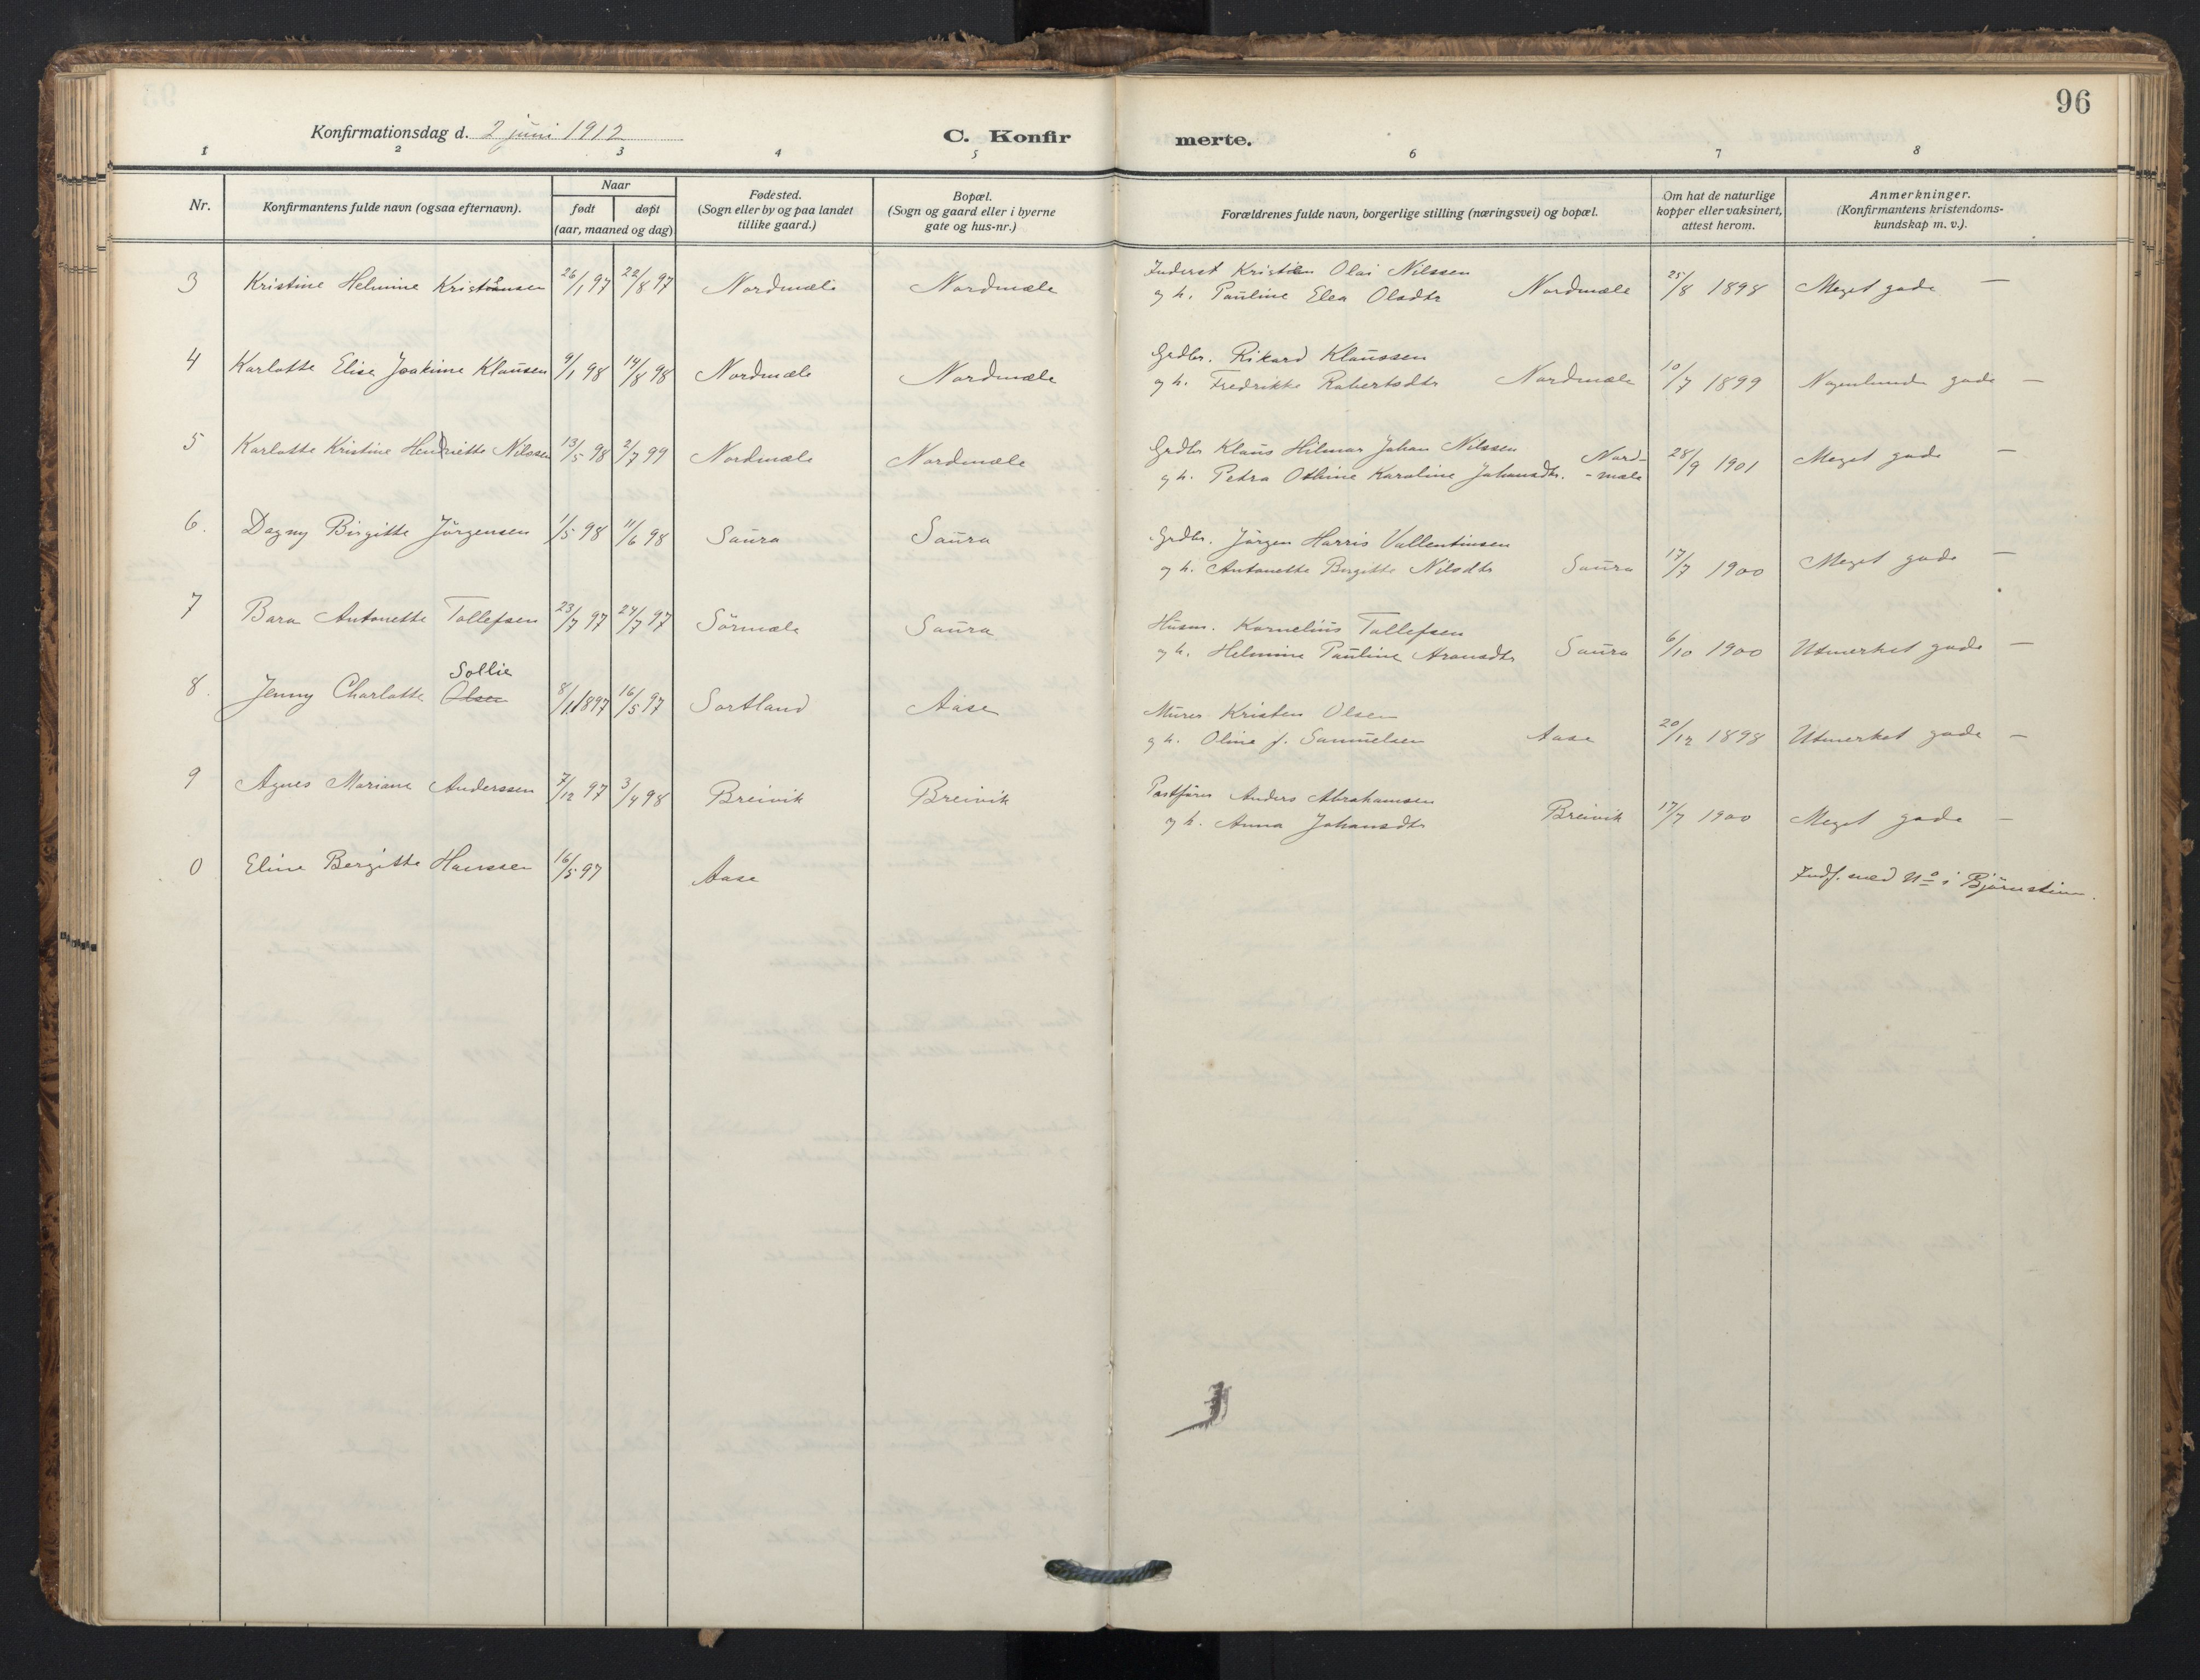 96
Konfirmationsdag d. 2 juni 1912
C. Konfir merte.
1 2 3 4 5 6 7 8
Nr.
Konfirmantens fulde navn (ogsaa efternavn).
Naar
født døpt
(aar, maaned og dag)
Fødested.
(Sogn eller by og paa landet
tillike gaard.)
Bopæl.
(Sogn og gaard eller i byerne
gate og hus-nr.)
Forældrenes fulde navn, borgerlige stilling (næringsvei) og bopæl.
Om hat de naturlige
kopper eller vaksinert,
attest herom.
Anmerkninger.
(Konfirmantens kristendoms-
kundskap m. v.).
3 Kristine Helmine Kristiansen 26/1 97 22/8 97 Nordmæle Nordmæle Inderst Kristian Olai Nilssen
g h. Pauline Elea Olsdtr Nordmæle 25/8 1898 Meget gode —
4 Karlotte Elise Joakime Klausen 9/1 98 14/8 98 Nordmæle Nordmæle Grdbr. Rikard Klaussen
g h. Fredrikke Robertsdtr Nordmæle 10/7 1899 Nogenlunde gode —
5 Karlotte Kristine Hendriette Nilssen 13/5 98 2/7 99 Nordmæle Nordmæle Grdbr Klaus Hilmar Johan Nilssen Nord-
g h. Petra Othine Karoline Johansdtr. -mæle 28/9 1901 Meget gode —
6. Dagny Birgitte Jörgensen 1/5 98 11/6 98 Saura Saura Grdbr. Jörgen Harris Vallentinsen
g h. Antonette Bergitte Nilsdtr Saura 17/7 1900 Meget gode —
7 Bara Antonette Tollefsen 23/7 97 24/7 97 Sörmæle Saura Husm. Kornelius Tollefsen
g h. Helmine Pauline Aronsdtr Saura 6/10 1900 Utmerket gode —
Sollie
8. Jenny Charlotte Olsen 8/1 1897 16/5 97 Sortland Aase Murer Kristen Olsen
g h. Oline f. Samuelsen Aase 20/12 1898 Utmerket gode —
9 Agnes Mariane Anderssen 7/12 97 3/4 98 Breivik Breivik Postförer Anders Abrahamsen
g h. Anna Johansdtr Breivik 17/7 1900 Meget gode —
0 Eline Bergitte Hanssen 16/5 97 Aase Indf. med No i Björnskinn.